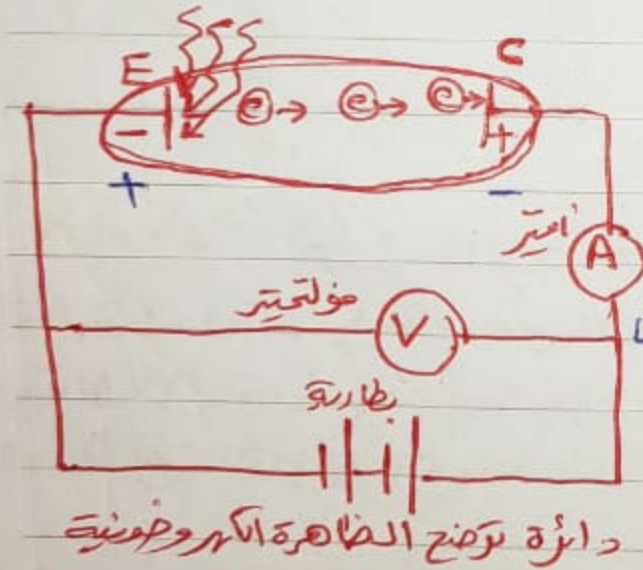 E
C
e e e
- +
+ -
أميتر
A
فولتميتر
V
بطارية
دائرة توضح الظاهرة الكهروضوئية